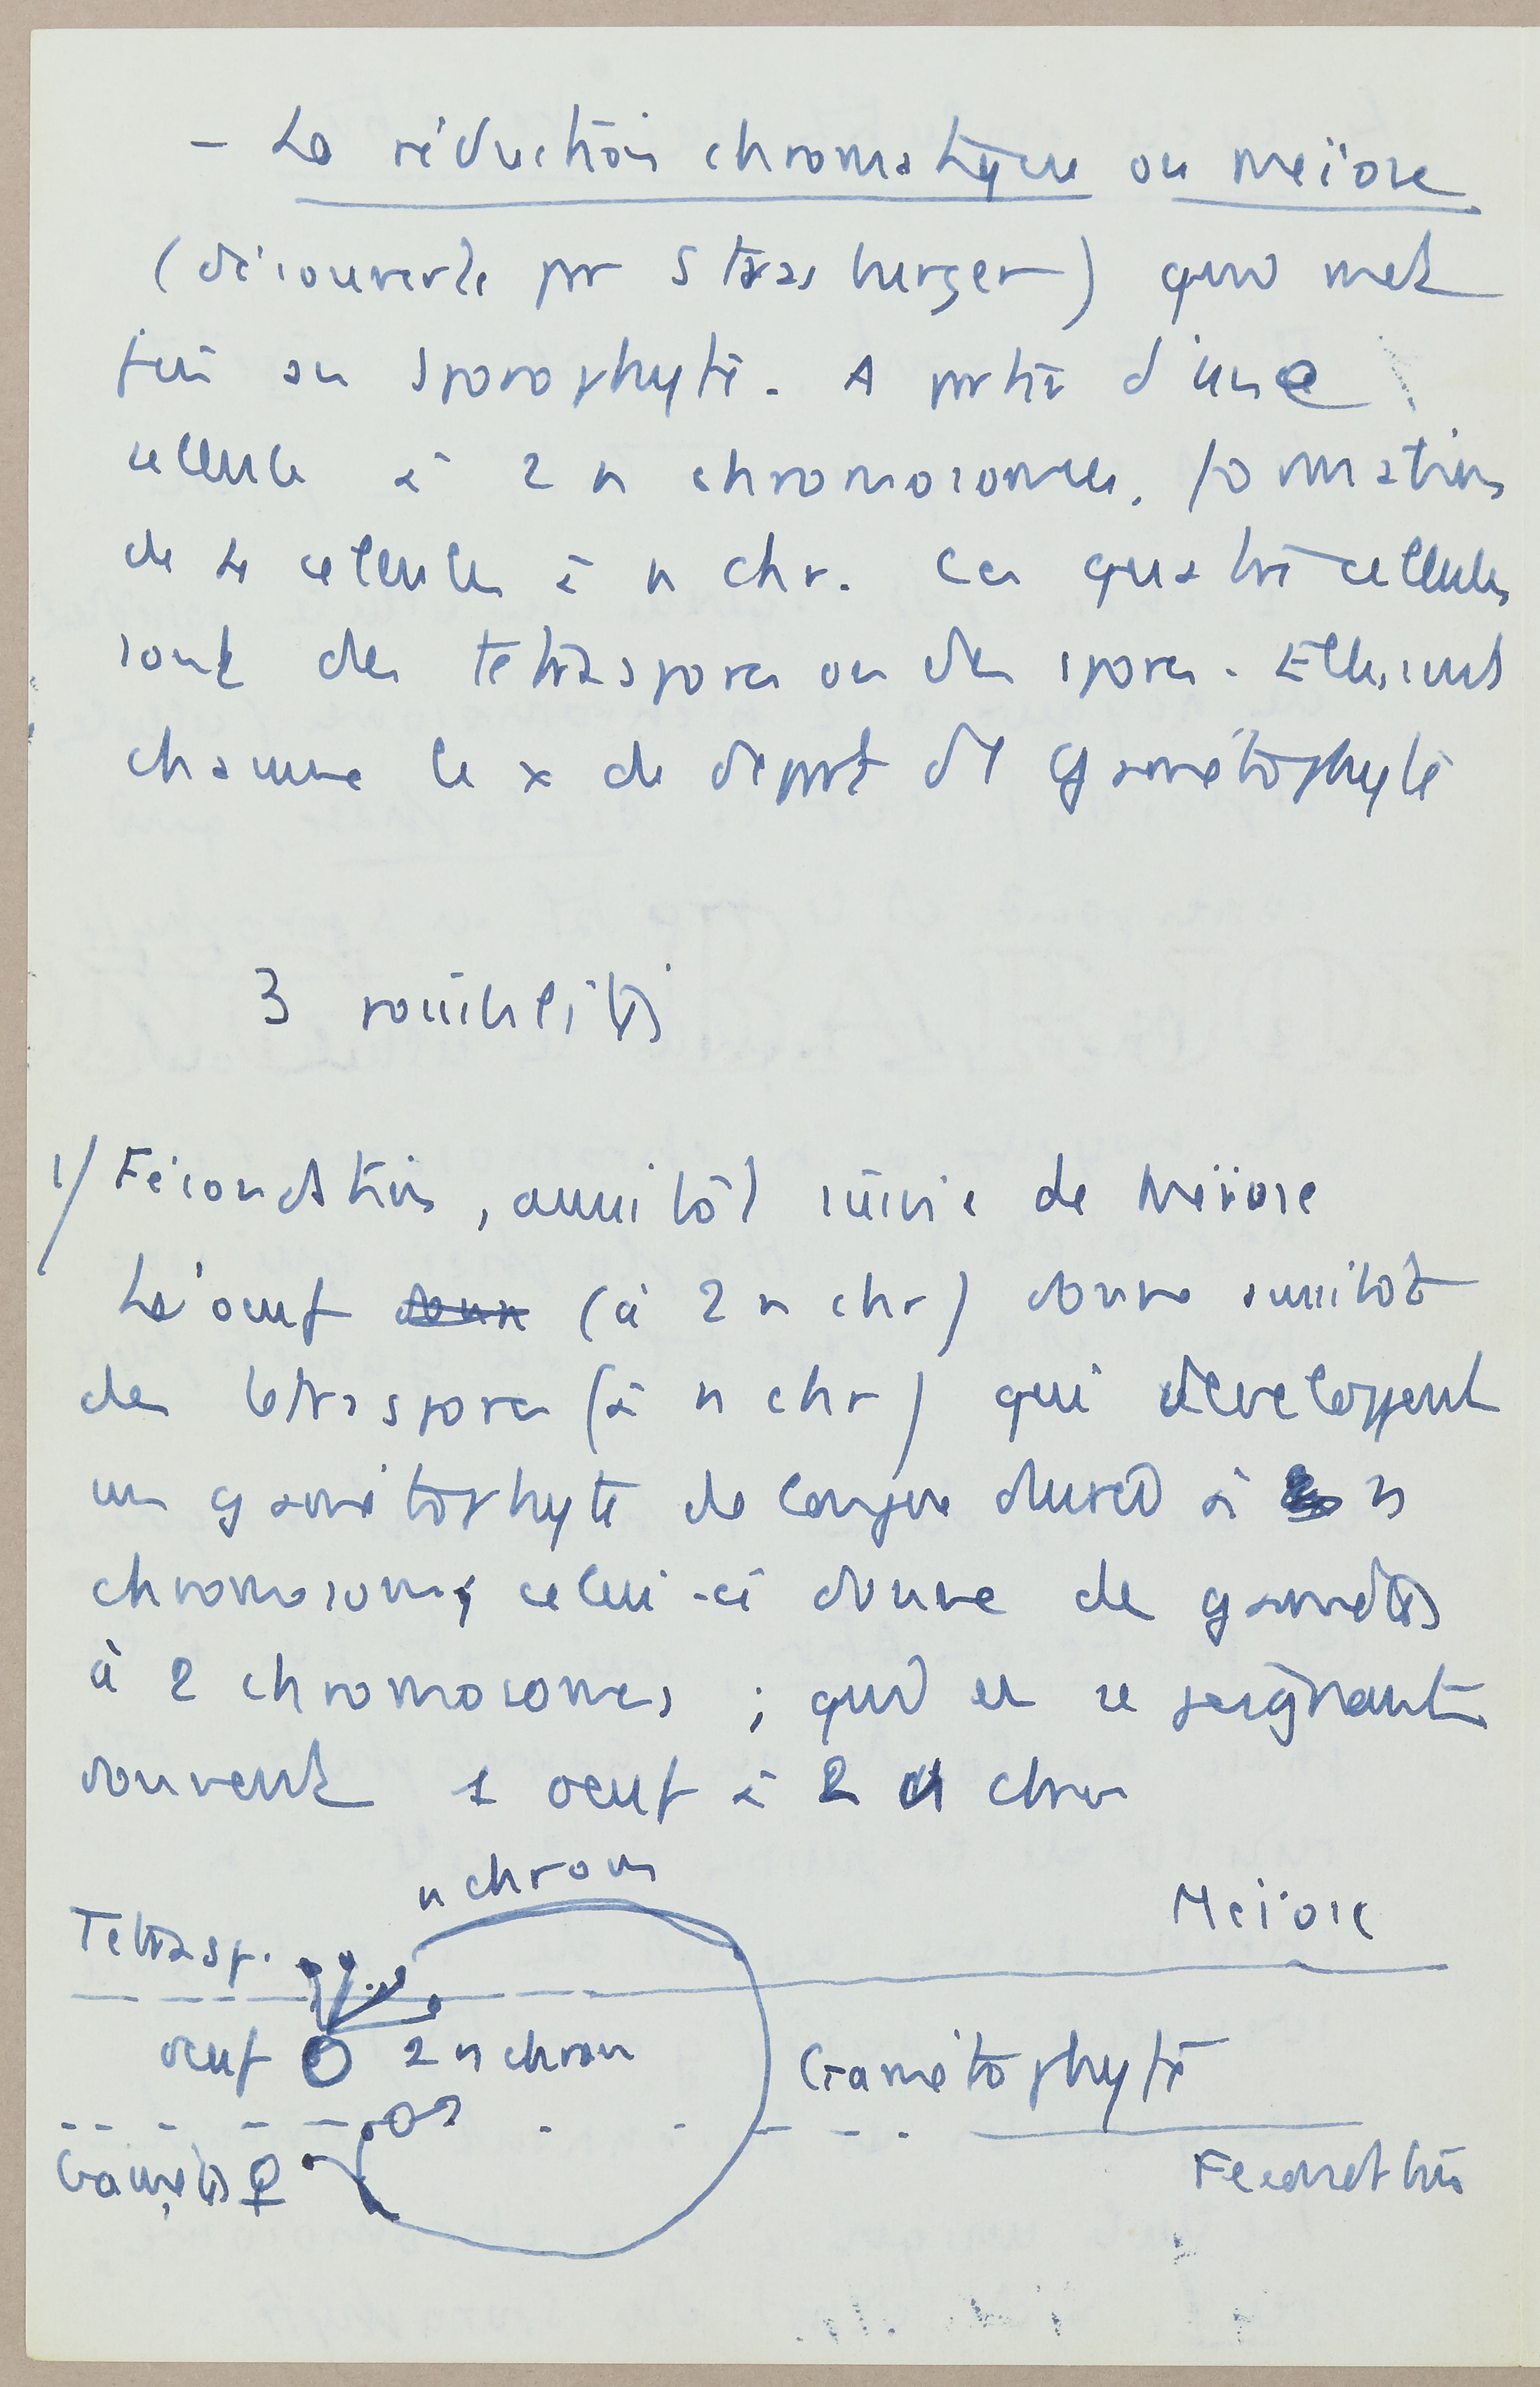 - La réduction chromatique ou meïose
(découverte par Strasburger) qui met
fin au sporophyte. A partir d'une
cellule à 2 n chromosomes, formation
de 4 cellules à n chr. Ces quatre cellules
sont des tétraspores ou des spores. Elles sont
chacune le x de départ d'1 gamétophyte
3 possibilités
1/ Fécondation, aussitôt suivie de Meïose
L'oeuf donne (à 2 n chr) donne aussitôt
des tétraspores (à n chr) qui développent
un gamétophyte de longue durée à n
chromosomes, celui-ci donne de gamètes
à 2 chromosomes ; qui en se
donnent 1 oeuf à 2 n chrom
n chrom
Meïose
Tetrasp.
oeuf 2 n chrom
Gamétophyte
♂
Gamètes ♀
Fécondation